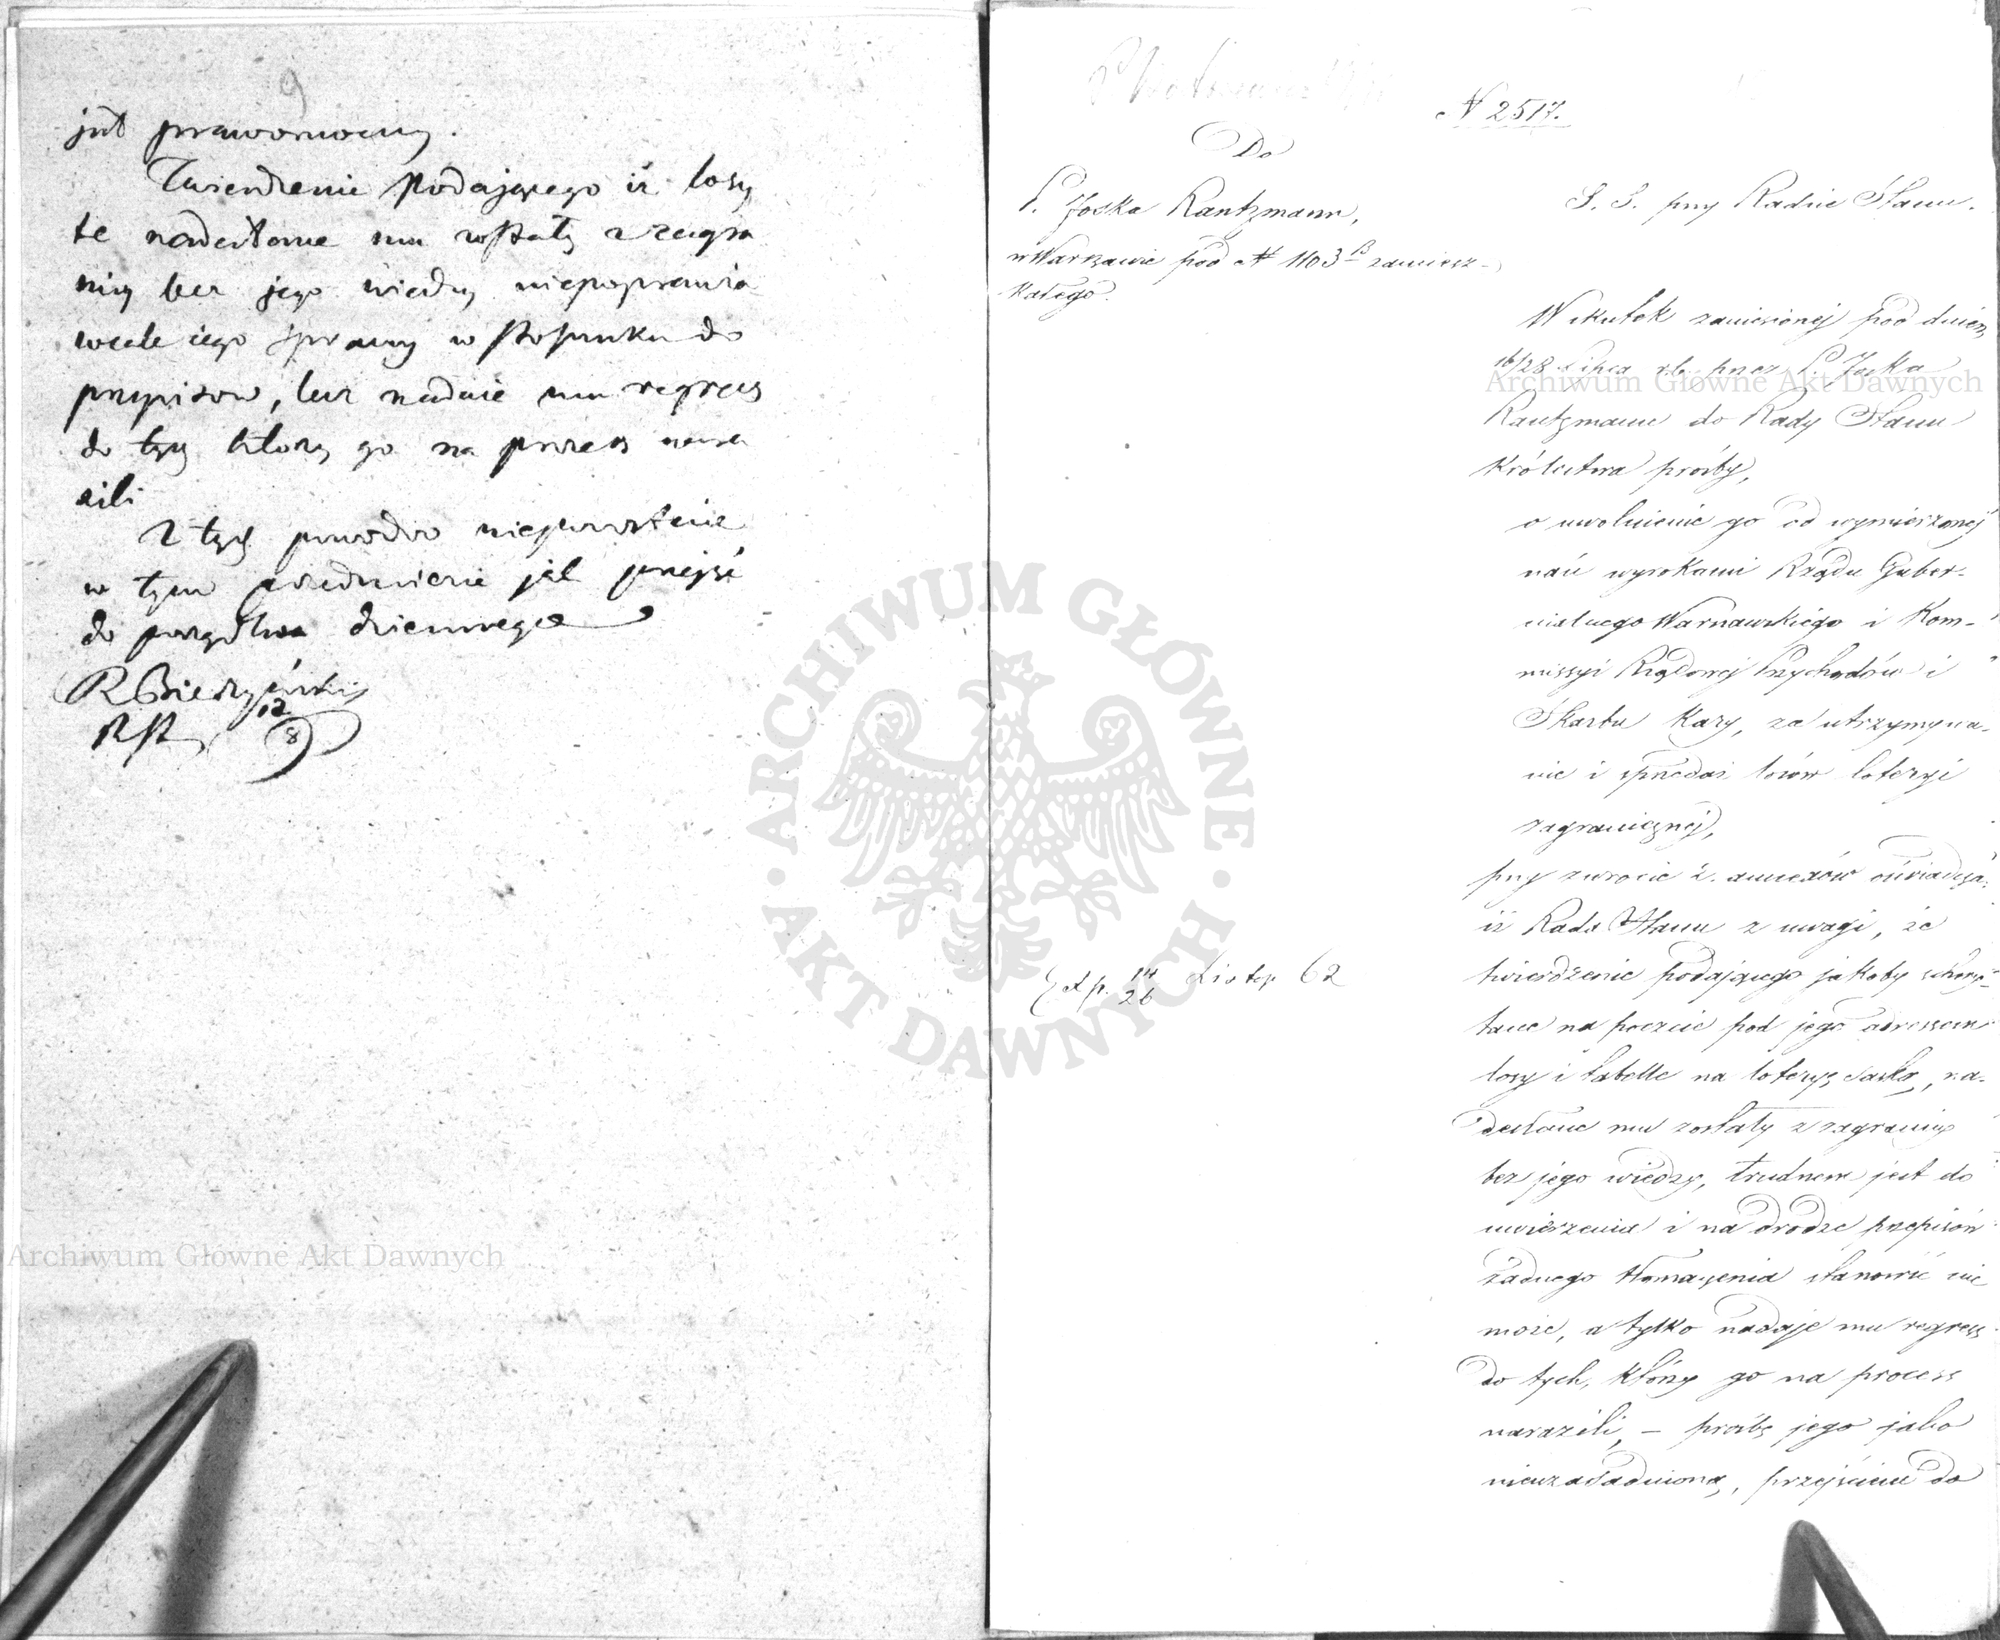 9
już prawomocny.
Twierdzenie podającego iż losy
te nadesłane mu zostały z zagra
nicy bez jego wiedzy niepoprawia
wcale iego sprawy w stosunku do
przepisow, lecz nadaie mu regress
do tych ktorzy go na process nara
zili
Z tych powodow
w tym przedmiocie jak przejść
do porządku dziennego
12
8
N 2517.
Do
P. Joska Kantzmann,
w Warszawie pod N 1103 B zamiesz-
kałego.
Exp. 14/26 Listop 62
S. S. przy Radzie Stanu.
W skutek zaniesionej pod dniem
16/28 Lipca r.b. przez P. Joska
Kantzmann do Rady Stanu
Królestwa prośby,
o uwolnienie go od wymierzonej
nań wyrokami Rządu Guber-
nialnego Warszawskiego i Kom-
missyi Rządowej Przychodów i
Skarbu kary, za utrzymywa-
nie i sprzedaż losów loteryi
zagranicznej,
przy zwrocie 2. annexów oświadcza,
iż Rada Stanu z uwagi, że
twierdzenie podającego jakoby schwy-
tane na poczcie pod jego adressem
losy i tabelle na loteryę Saską, na-
desłane mu zostały z zagranicy
bez jego wiedzy, trudnem jest do
uwierzenia i na drodze przepisów
żadnego tłomaczenia stanowić nie
może, a tylko nadaje mu regress
do tych, którzy go na process
narazili, – prośbę jego jako
nieuzasadnioną, przejściem do
Archiwum Główne Akt Dawnych
Archiwum Główne Akt Dawnych
ARCHIWUM GŁÓWNE AKT DAWNYCH